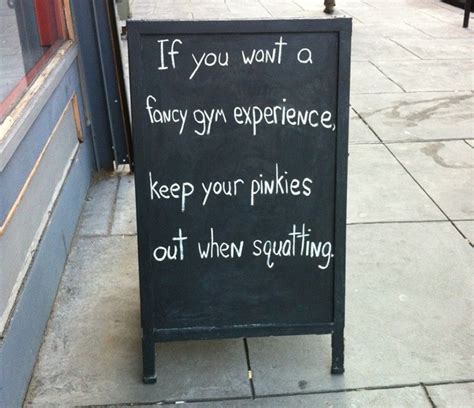 If you want a
fancy gym experience,
keep your pinkies
out when squatting.